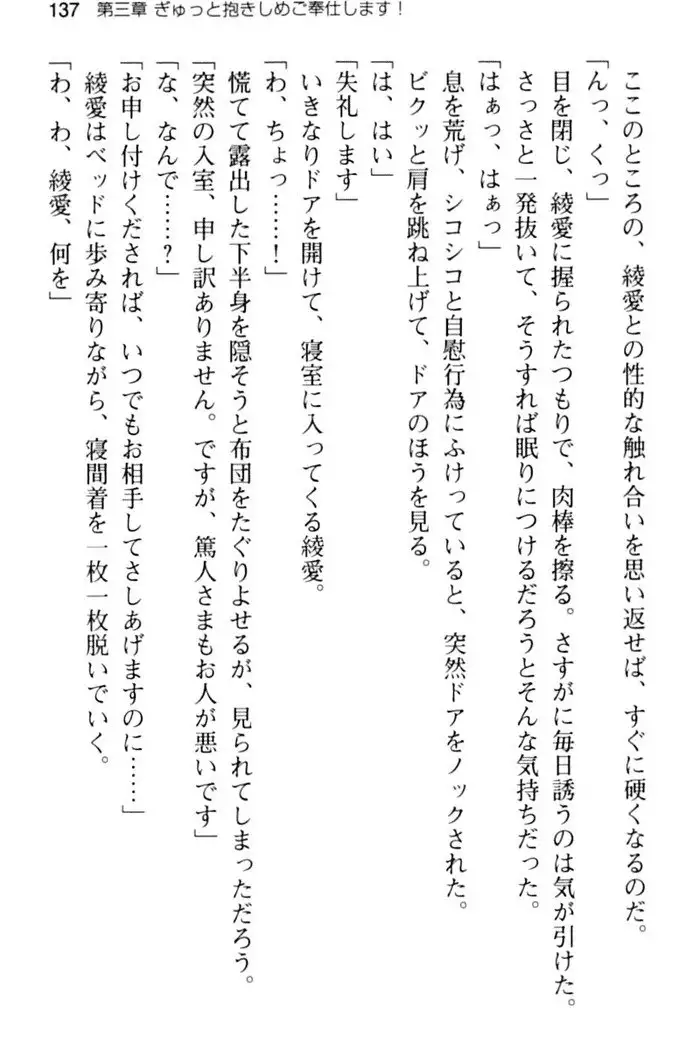 137 第三章 ぎゅっと抱きしめご奉仕します!
ここのところの、綾愛との性的な触れ合いを思い返せば、すぐに硬くなるのだ。
「んっ、くっ」
目を閉じ、綾愛に握られたつもりで、肉棒を擦る。さすがに毎日誘うのは気が引けた。
さっさと一発抜いて、そうすれば眠りにつけるだろうとそんな気持ちだった。
「はぁっ、はぁっ」
息を荒げ、シコシコと自慰行為にふけっていると、突然ドアをノックされた。
ビクッと肩を跳ね上げて、ドアのほうを見る。
「は、はい」
「失礼します」
いきなりドアを開けて、寝室に入ってくる綾愛。
「わ、ちょっ……!」
慌てて露出した下半身を隠そうと布団をたぐりよせるが、見られてしまっただろう。
「突然の入室、申し訳ありません。ですが、篤人さまもお人が悪いです」
「な、なんで……?」
「お申し付けくだされば、いつでもお相手してさしあげますのに……」
綾愛はベッドに歩み寄りながら、寝間着を一枚一枚脱いでいく。
「わ、わ、綾愛、何を」